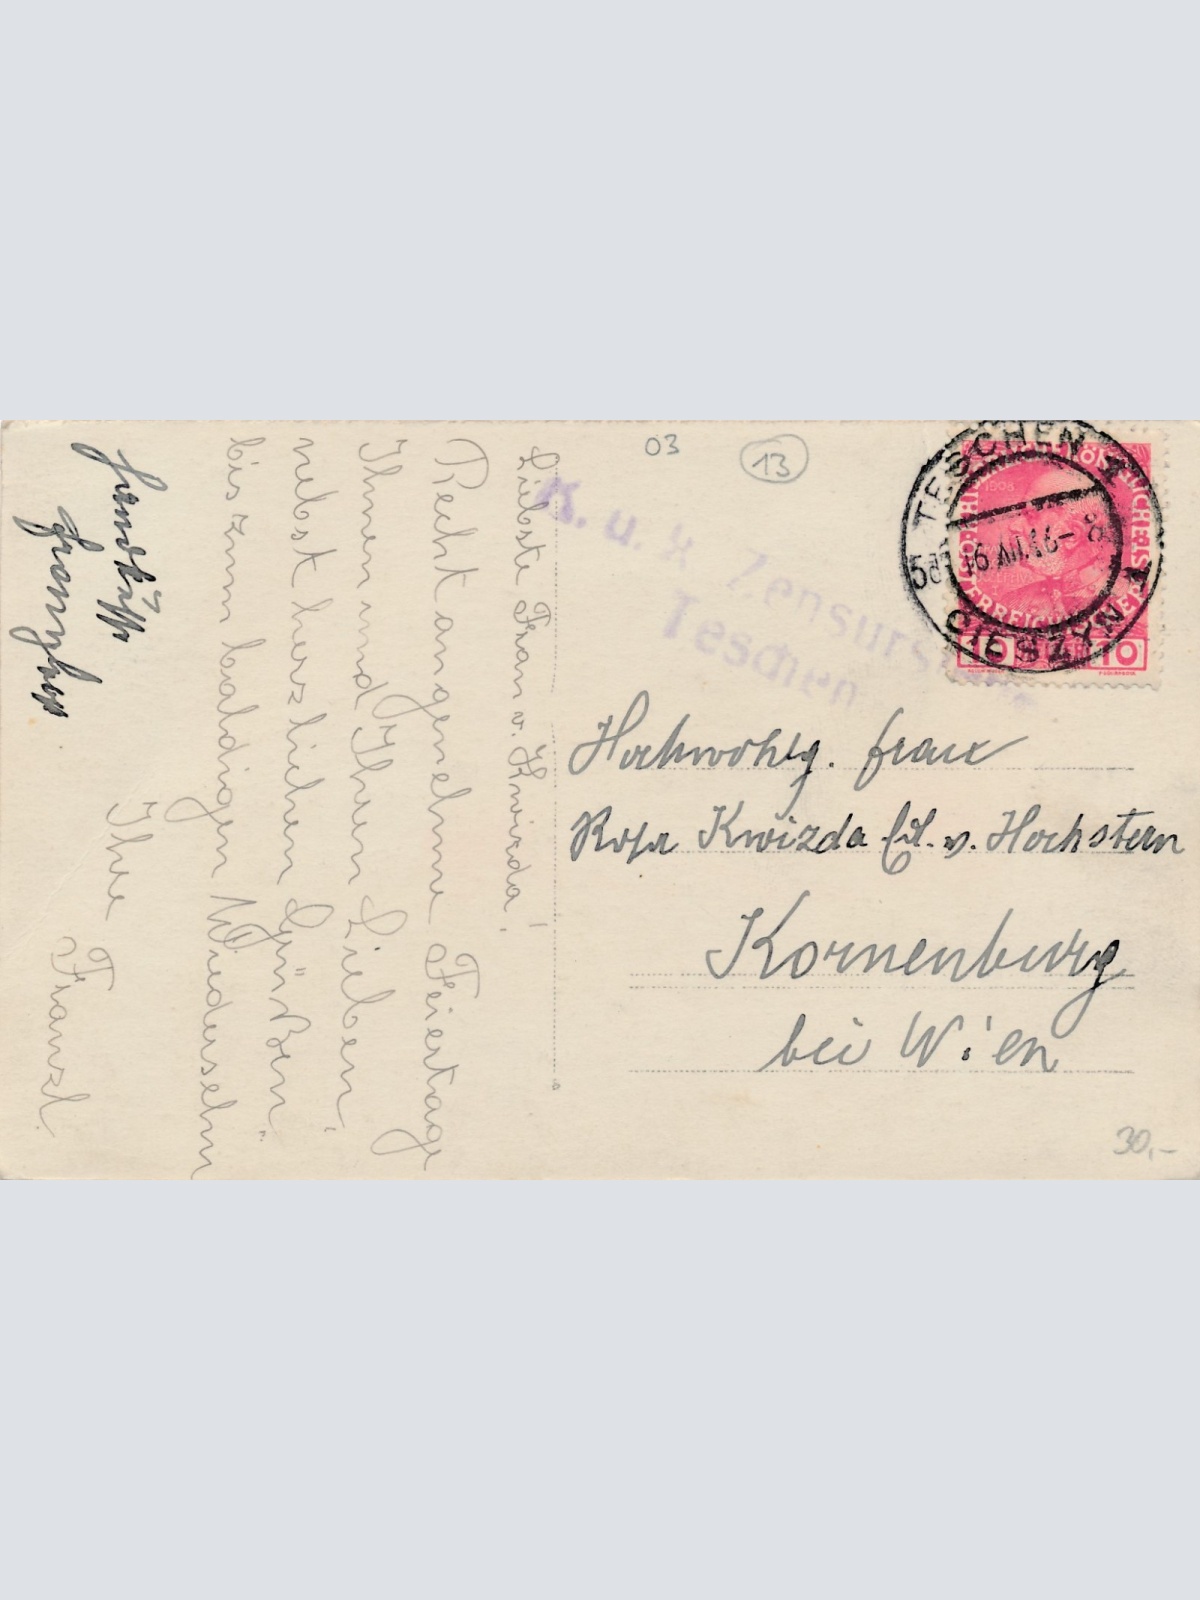 03
13
TESCHEN 1
16.XII.16-8
CIESZYN 1
1908
10 10
K. u. k. Zensurstelle
Teschen
Hochwohlg. Frau
Rosa Kwizda Edl. v. Hochstern
Korneuburg
bei Wien
30,-
Liebste Frau v. Kwizda!
Recht angenehme Feiertage
Ihnen und Ihren Lieben,
nebst herzlichen Grüßen
bis zum baldigen Wiedersehn
Ihre
Franzl.
Handkuss